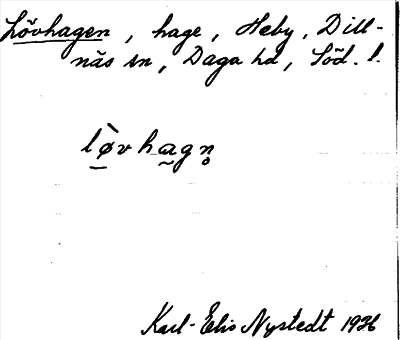 Lövhagen, hage, Heby, Dill-
näs sn, Daga hd, Söd. l.
lø̀vhagn̥
Karl-Elis Nystedt 1936